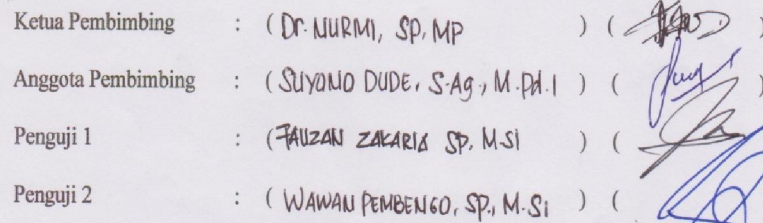 Ketua Pembimbing : ( Dr. NURMI, SP, MP ) ( )
Anggota Pembimbing : ( SUYONO DUDE, S.Ag., M.Pd.I ) ( )
Penguji 1 : ( FAUZAN ZAKARIA SP, M.Si ) ( )
Penguji 2 : ( WAWAN PEMBENGO, SP., M.Si ) (